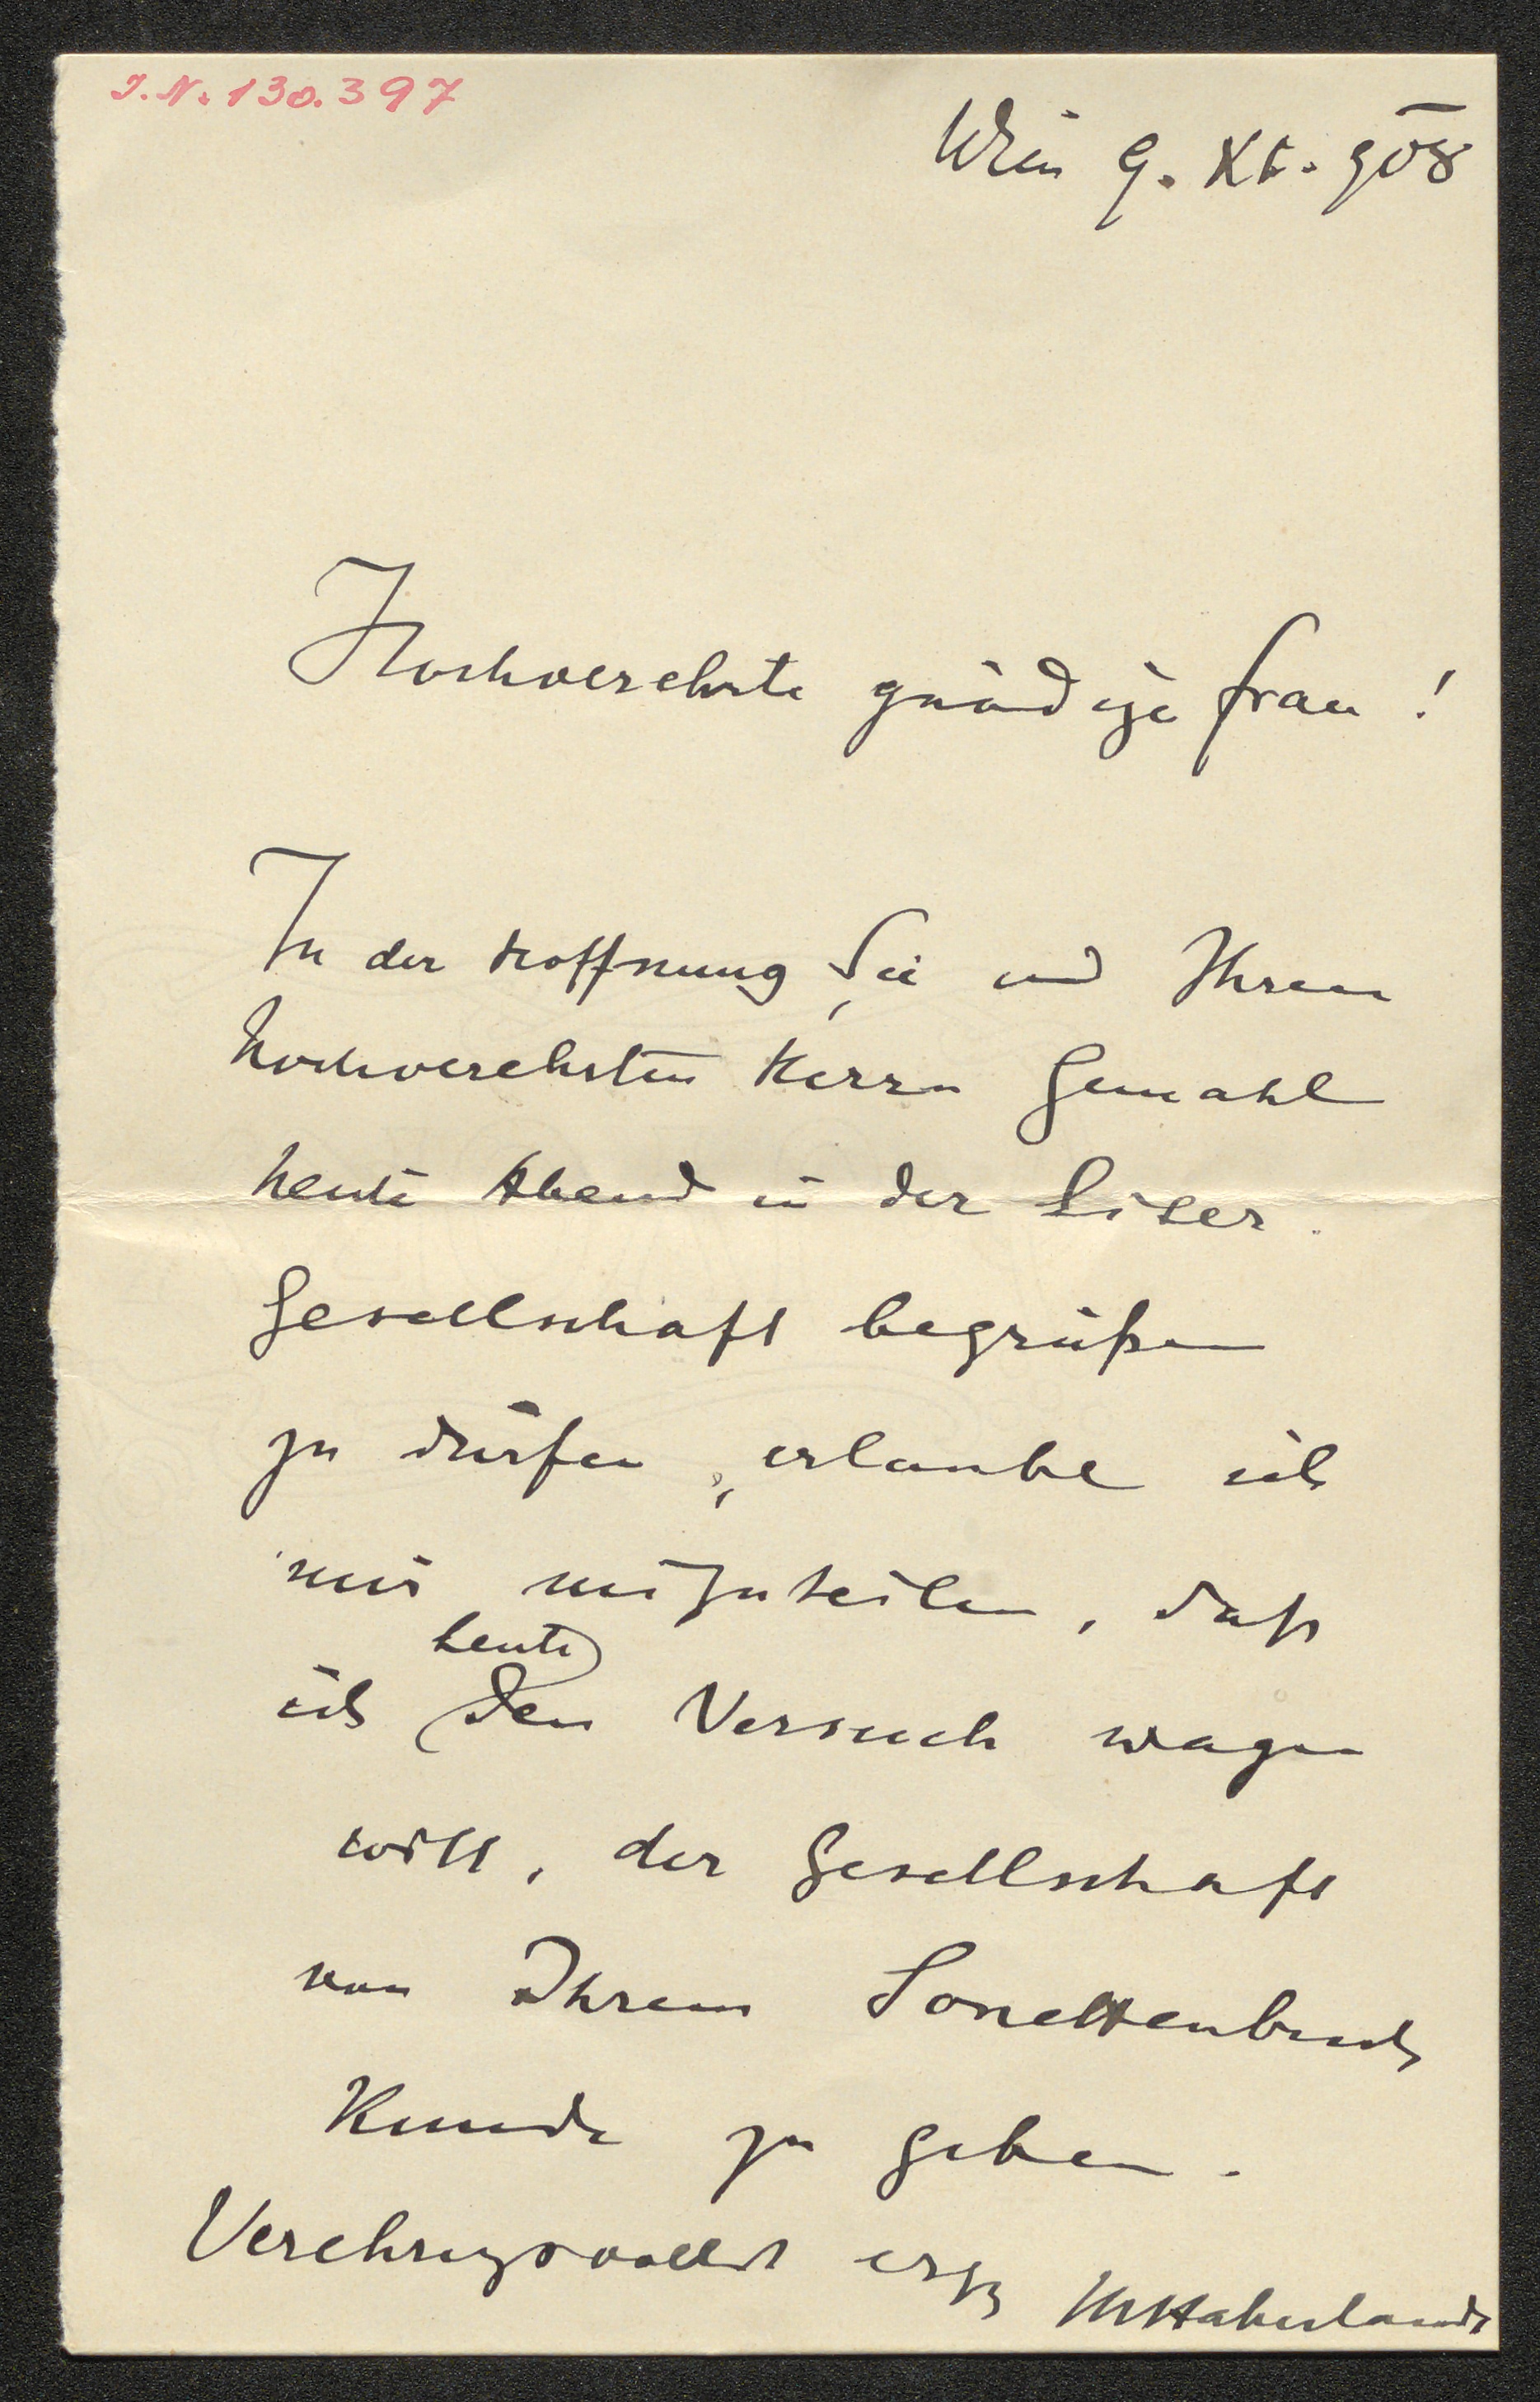 J.N. 130.397
Wien 9. XI. 908
Hochverehrte gnädige Frau!
In der Hoffnung, Sie und Ihren
hochverehrten Herrn Gemahl
heute Abend in der Liter.
Gesellschaft begrüßen
zu dürfen, erlaube ich
mir mitzuteilen, daß
heute
ich den Versuch wagen
will, der Gesellschaft
von Ihrem Sonettenbuch
Kunde zu geben.
Verehrungsvollst ergb MHaberlandt